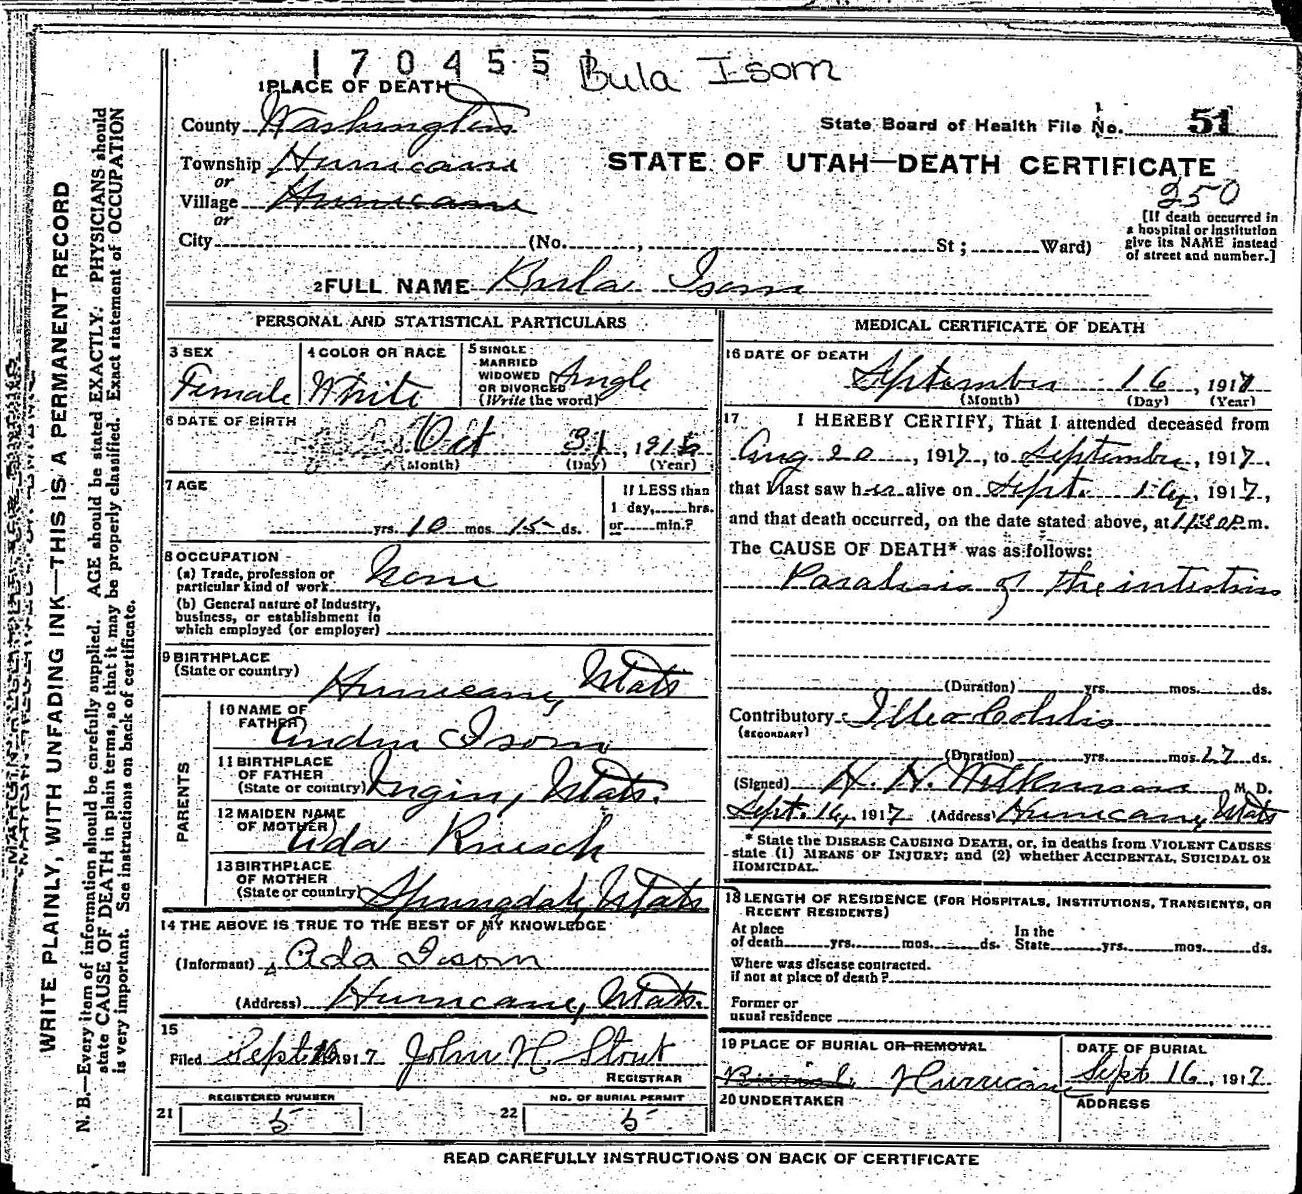 170455 Bula Isom
1 PLACE OF DEATH
County Washington
State Board of Health File No. 51
Township Hurricane
STATE OF UTAH—DEATH CERTIFICATE
or
250
Village Hurricane
or
[If death occurred in a hospital or institution give its NAME instead of street and number.]
City (No. , St; Ward)
2 FULL NAME Bula Isom
PERSONAL AND STATISTICAL PARTICULARS
3 SEX Female
4 COLOR OR RACE White
5 SINGLE, MARRIED WIDOWED OR DIVORCED (Write the word) Single
6 DATE OF BIRTH Oct 31, 191
(Month) (Day) (Year)
7 AGE
yrs. 10 mos. 15 ds.
If LESS than
1 day, hrs.
or min.?
8 OCCUPATION
(a) Trade, profession or
particular kind of work None
(b) General nature of Industry,
business, or establishment in
which employed (or employer)
9 BIRTHPLACE
(State or country) Hurricane, Utah
PARENTS
10 NAME OF
FATHER Isom
11 BIRTHPLACE
OF FATHER
(State or country) Virgin, Utah.
12 MAIDEN NAME
OF MOTHER Ada
13 BIRTHPLACE
OF MOTHER
(State or country) Springdale, Utah
14 THE ABOVE IS TRUE TO THE BEST OF MY KNOWLEDGE
(Informant) Ada Isom
(Address) Hurricane, Utah.
15
Filed Sept. 16 1917 John H Stout
REGISTRAR
21 REGISTERED NUMBER 5
22 NO. OF BURIAL PERMIT 5
MEDICAL CERTIFICATE OF DEATH
16 DATE OF DEATH
September 16, 1917
(Month) (Day) (Year)
17 I HEREBY CERTIFY, That I attended deceased from
Aug 20, 1917, to September, 1917.
that I last saw her alive on Sept. 16, 1917,
and that death occurred, on the date stated above, at m.
The CAUSE OF DEATH* was as follows:
Paralisis of the intestins
(Duration) yrs. mos. ds.
Contributory Illeo Colitis
(SECONDARY)
(Duration) yrs. mos. 27 ds.
(Signed) Wilkinson M. D.
Sept. 16, 1917 (Address) Hurricane, Utah
* State the DISEASE CAUSING DEATH, or, in deaths from VIOLENT CAUSES
state (1) MEANS OF INJURY; and (2) whether ACCIDENTAL, SUICIDAL OR
HOMICIDAL.
18 LENGTH OF RESIDENCE (FOR HOSPITALS, INSTITUTIONS, TRANSIENTS, OR
RECENT RESIDENTS)
At place
of death yrs. mos. ds.
In the
State yrs. mos. ds.
Where was disease contracted.
if not at place of death?
Former or
usual residence
19 PLACE OF BURIAL OR REMOVAL
Burial Hurricane
DATE OF BURIAL
Sept 16, 1917
20 UNDERTAKER
ADDRESS
READ CAREFULLY INSTRUCTIONS ON BACK OF CERTIFICATE
WRITE PLAINLY, WITH UNFADING INK—THIS IS A PERMANENT RECORD
N. B.—Every item of information should be carefully supplied. AGE should be stated EXACTLY. PHYSICIANS should
state CAUSE OF DEATH in plain terms, so that it may be properly classified. Exact statement of OCCUPATION
is very important. See instructions on back of certificate.